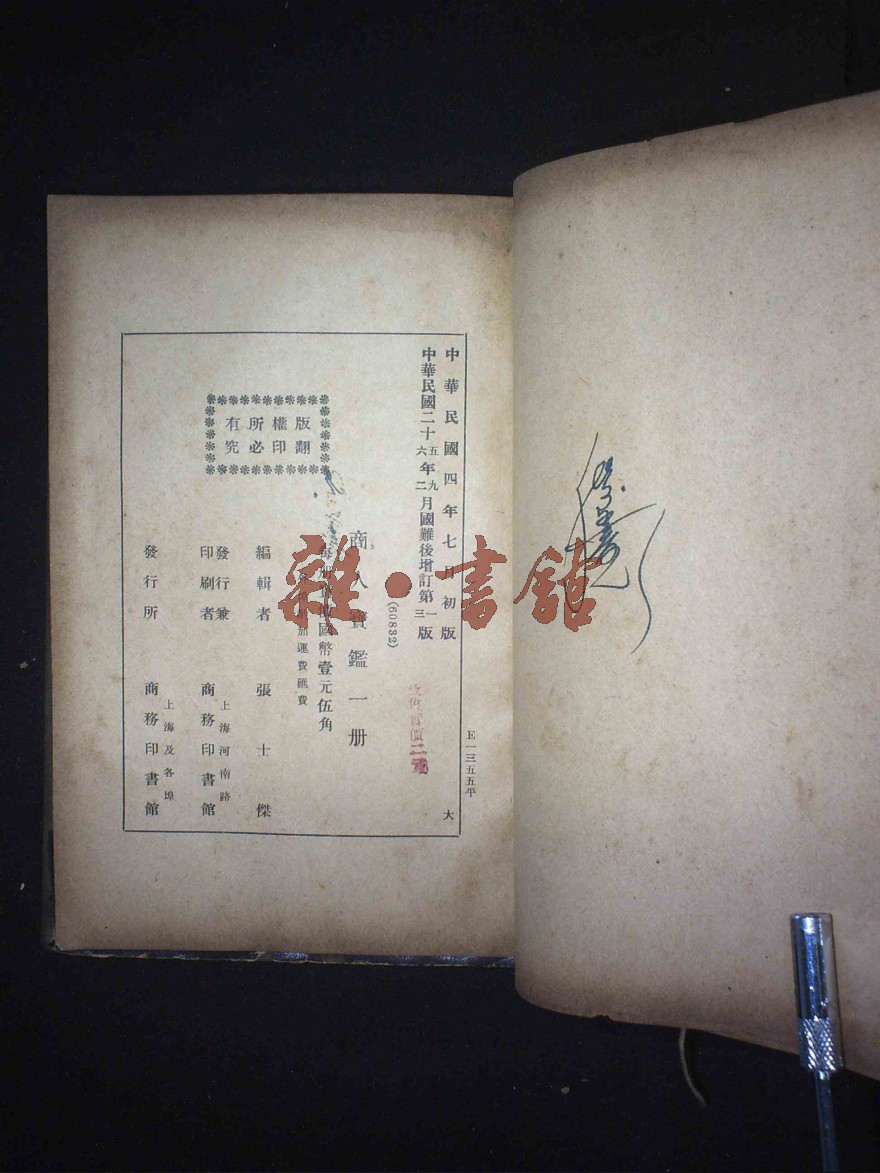 中華民國四年七月初版
中華民國二十五年九月國難後增訂第一版
六二三
(60832)
商人寶鑑一册
國幣壹元伍角
運費匯費
編輯者 張士傑
發行兼印刷者 上海河南路 商務印書館
發行所 上海及各埠 商務印書館
版權所有
翻印必究
E一三五五平
大
雜·書館